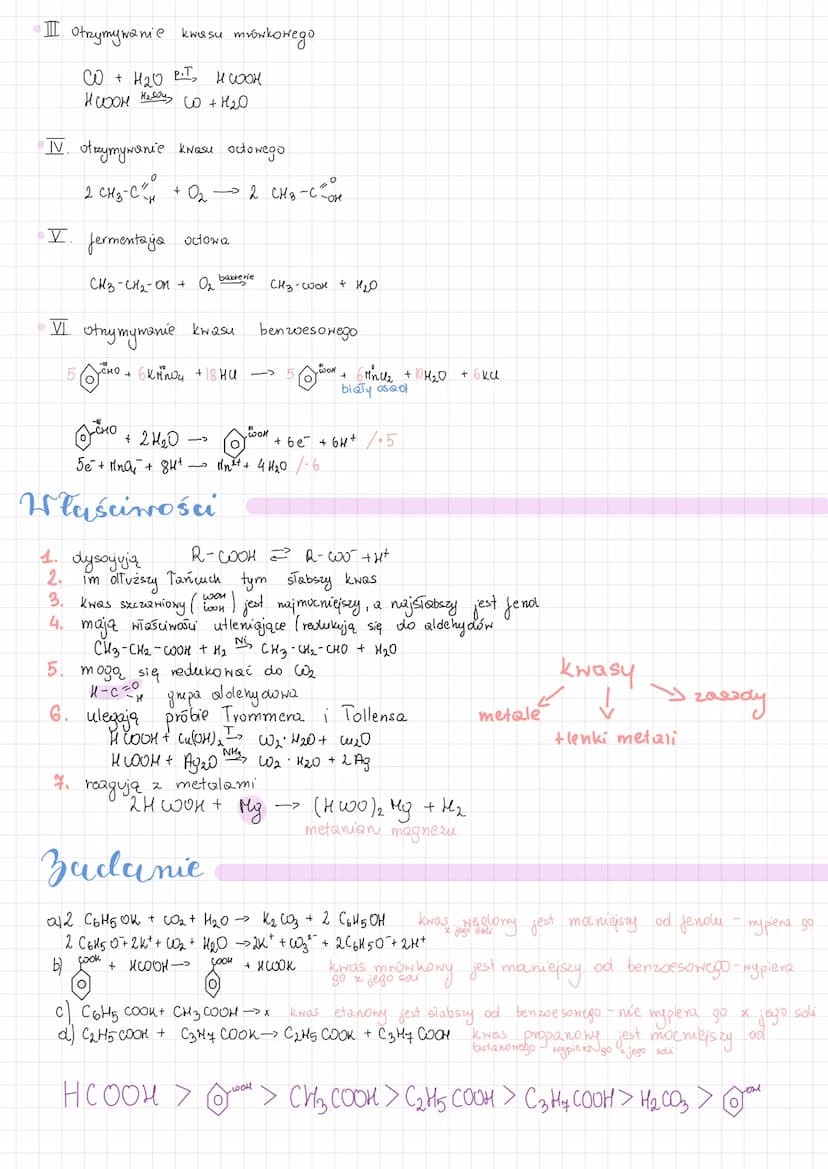 III. otrzymywanie kwasu mrówkowego
CO + H2O p,T→ HCOOH
HCOOH H2SO4→ CO + H2O
IV. otrzymywanie kwasu octowego
2 CH3-C=O-H + O2 → 2 CH3-C=O-OH
V. fermentacja octowa
CH3-CH2-OH + O2 bakterie→ CH3-COOH + H2O
VI. otrzymywanie kwasu benzoesowego
5 CHO + 6KMnO4 + 18HCl → 5 COOH + 6MnCl2 + 10H2O + 6KCl
biały osad
CHO + 2H2O → COOH + 6e⁻ + 6H⁺ /·5
5e⁻ + MnO4⁻ + 8H⁺ → Mn²⁺ + 4H2O /·6
Właściwości
1. dysocjują R-COOH ⇄ R-COO⁻ + H⁺
2. im dłuższy łańcuch tym słabszy kwas
3. kwas szczawiowy (COOH COOH) jest najmocniejszy, a najsłabszy jest fenol
4. mają właściwości utleniające (redukują się do aldehydów
CH3-CH2-COOH + H2 Ni→ CH3-CH2-CHO + H2O
5. mogą się redukować do CO2
H-C=O-H grupa aldehydowa
6. ulegają próbie Trommera i Tollensa
HCOOH + Cu(OH)2 T→ CO2 · H2O + Cu2O
HCOOH + Ag2O NH3→ CO2 · H2O + 2Ag
7. reagują z metalami
2HCOOH + Mg → (HCOO)2 Mg + H2
metanian magnezu
kwasy
metale
tlenki metali
zasady
Zadanie
a) 2 C6H5OK + CO2 + H2O → K2CO3 + 2 C6H5OH kwas węglowy jest mocniejszy od fenolu - wypiera go z jego soli
2 C6H5O⁻ + 2K⁺ + CO2 + H2O → 2K⁺ + CO3²⁻ + 2C6H5O⁻ + 2H⁺
b) COOK + HCOOH → COOH + HCOOK kwas mrówkowy jest mocniejszy od benzoesowego - wypiera go z jego soli
c) C6H5COOK + CH3COOH → x kwas etanowy jest słabszy od benzoesowego - nie wypiera go z jego soli
d) C2H5COOH + C3H7COOK → C2H5COOK + C3H7COOH kwas propanowy jest mocniejszy od butanowego - wypiera go z jego soli
HCOOH > COOH > CH3COOH > C2H5COOH > C3H7COOH > H2CO3 > OH